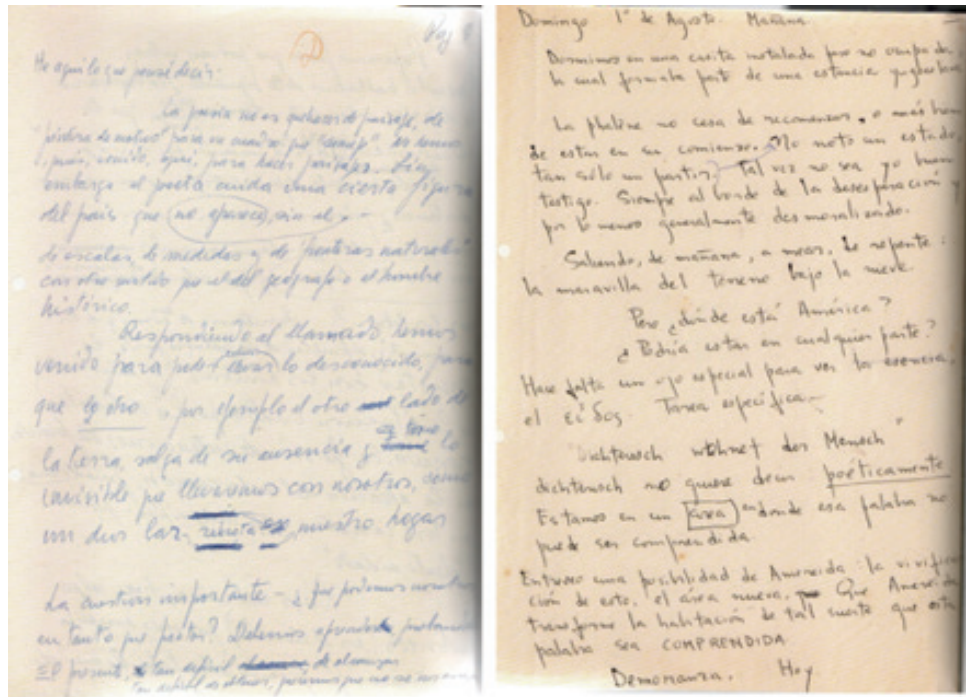 Pag
He aquí lo que pensé decir.
La poesía no es quehacer de paisaje, de
para un cuadro que No hemos
venido, aquí, para hacer paisajes. Sin
embargo el poeta cuida una cierta figura
del país que no aparece, sin él, -
de escalas, de medidas y de naturales
con otro sentido que el del geógrafo o el hombre
histórico.
Respondiendo al llamado hemos
venido para poder lo desconocido, para
que lo otro, por ejemplo el otro lado de
la tierra, salga de su ausencia y tome lo
invisible que llevaremos con nosotros, como
un dios lar, nuestro hogar
La cuestión importante - ¿ que podemos nombrar
en tanto que poetas? Debemos aprender
presente, tan difícil de alcanzar
tan difícil de obtener, que no se
Domingo 1° de Agosto. Mañana.
Dormimos en una casita instalada pero no ocupada,
la cual formaba parte de una estancia yugoeslava
La phalène no cesa de recomenzar, o más bien
de estar en su comienzo. No noto un estado,
tan sólo un partir. Tal vez no sea yo buen
testigo. Siempre al borde de la desesperación y
por lo menos generalmente desmoralizado.
Saliendo, de mañana, a mear, de repente:
la maravilla del terreno bajo la nieve.
Pero ¿dónde está América?
¿ Podría estar en cualquier parte?
Hace falta un ojo especial para ver la esencia,
el εἶδος. Tarea específica.-
dichterisch wohnet der Mensch"
dichterisch no quiere decir poéticamente
Estamos en un área en donde esa palabra no
puede ser comprendida.
Entreveo una posibilidad de Amereida: la vivifica
ción de esto, el área nueva. Que Amereida
transforme la habitación de tal suerte que esta
palabra sea COMPRENDIDA
Demoranza. Hoy